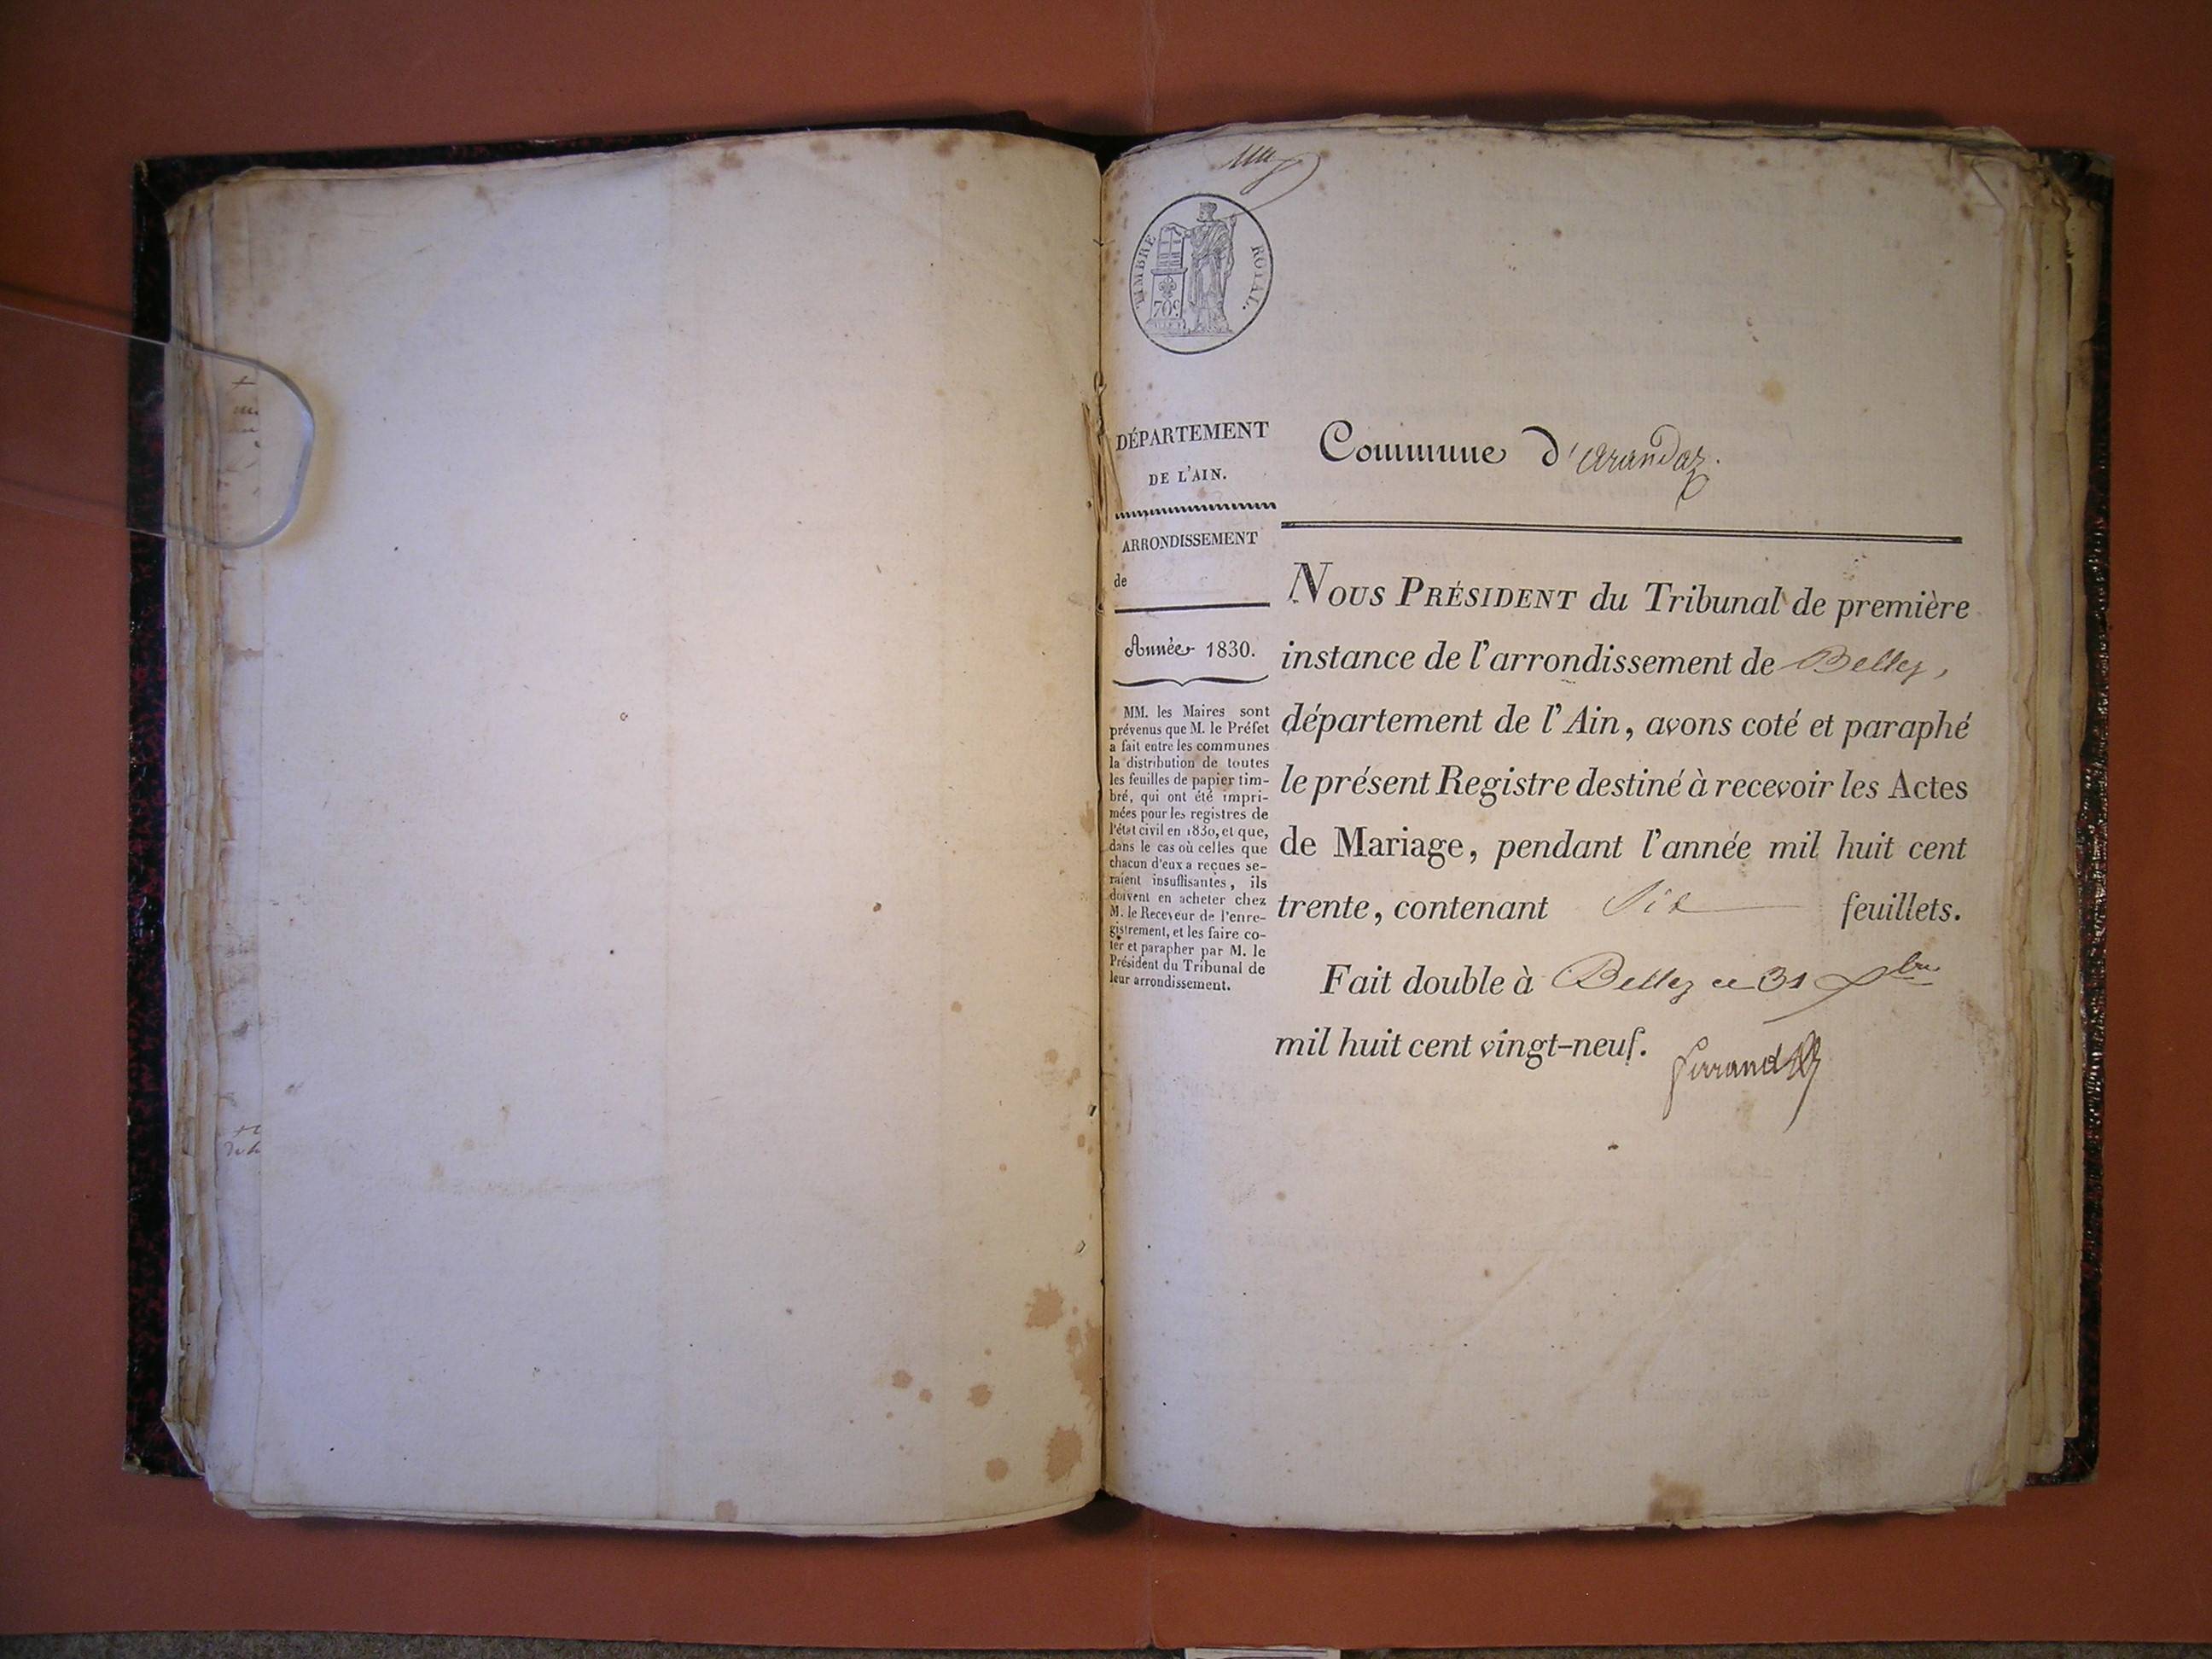 TIMBRE ROYAL.
70c.
DÉPARTEMENT
DE L'AIN.
ARRONDISSEMENT
de
Année 1830.
MM. les Maires sont
prévenus que M. le Préfet
a fait entre les communes
la distribution de toutes
les feuilles de papier tim-
bré, qui ont été impri-
mées pour les registres de
l'état civil en 1830, et que,
dans le cas où celles que
chacun d'eux a reçues se-
raient insuffisantes, ils
doivent en acheter chez
M. le Receveur de l'enre-
gistrement, et les faire co-
ter et parapher par M. le
Président du Tribunal de
leur arrondissement.
Commune d'arandaz.
NOUS PRÉSIDENT du Tribunal de première
instance de l'arrondissement de Belley,
département de l'Ain, avons coté et paraphé
le présent Registre destiné à recevoir les Actes
de Mariage, pendant l'année mil huit cent
trente, contenant Six feuillets.
Fait double à Belley ce 31 Xbre
mil huit cent vingt-neuf.